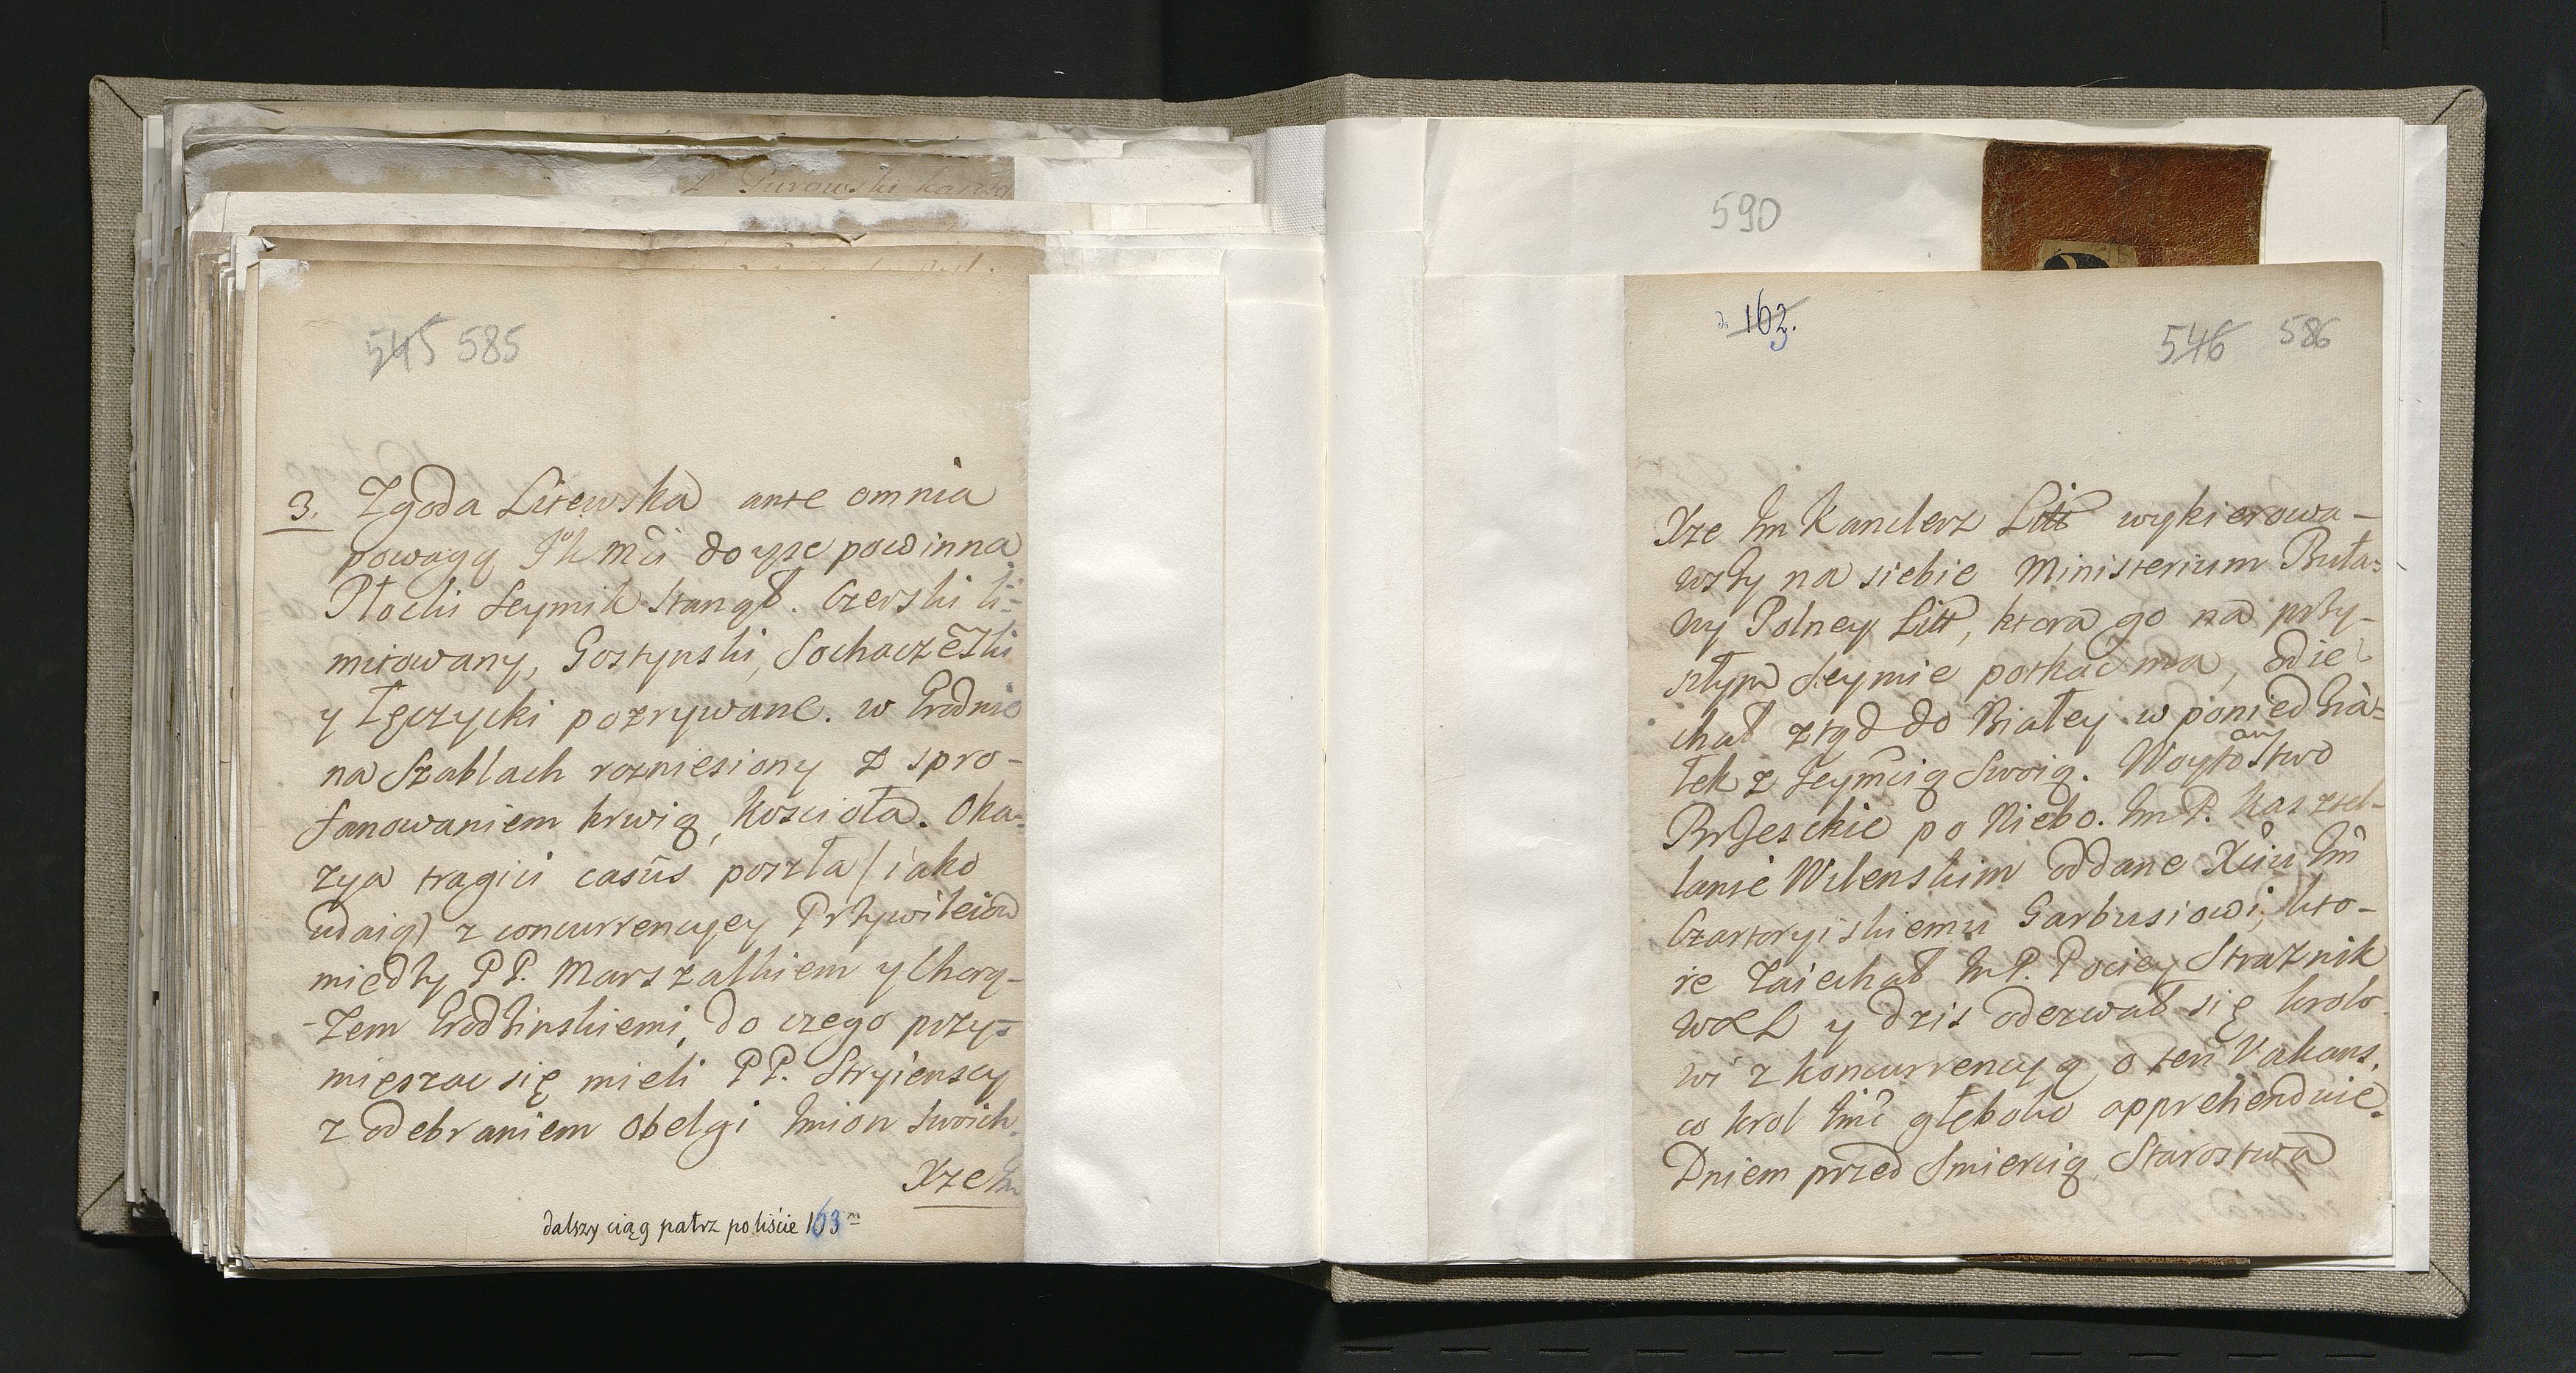 545 585
3. Zgoda Litewska ante omnia
powagą JKMci doyse powinna
Płocki Seymik stanął. Czerski li-
mitowany, Gostynski, Sochaczewski
y Łęczycki pozrywane. w Grodnie
na Szablach rozniesiony z spro-
fanowaniem krwią, koscioła. Oka-
zya tragici casus poszła / iako
udaią) z concurrencyey Przywileiow
między PP. Marszałkiem y Chorą-
żem Grodzinskiemi, do czego przy-
mięszac się mieli PP. Stryienscy
z odebraniem obelgi Imion swoich.
Xze Im
dalszy ciąg patrz po liście 163
590
do 163.
546 586
Xze Im Kanclerz Litt wykierowa-
wszy na siebie Ministerium Buła-
wy Polney Litt, ktora go na przy-
szłym Seymie potkac ma, odie-
chał ztąd do Białey w poniedzia-
łek z Jeymcią Swoią. Woytostwo
Brzesckie po Niebo. Im P. Kasztel-
lanie Wilenskim oddane Xciu Im
Czartoryiskiemu Garbusiowi, kto-
re zaiechał Im P. Pociey Strażnik
WXL y dzis oderwał się krolo
wi z koncurrencyą o ten Vakans,
co krol Imć głęboko apprehenduie.
Dniem przed Smiercią Starostwa